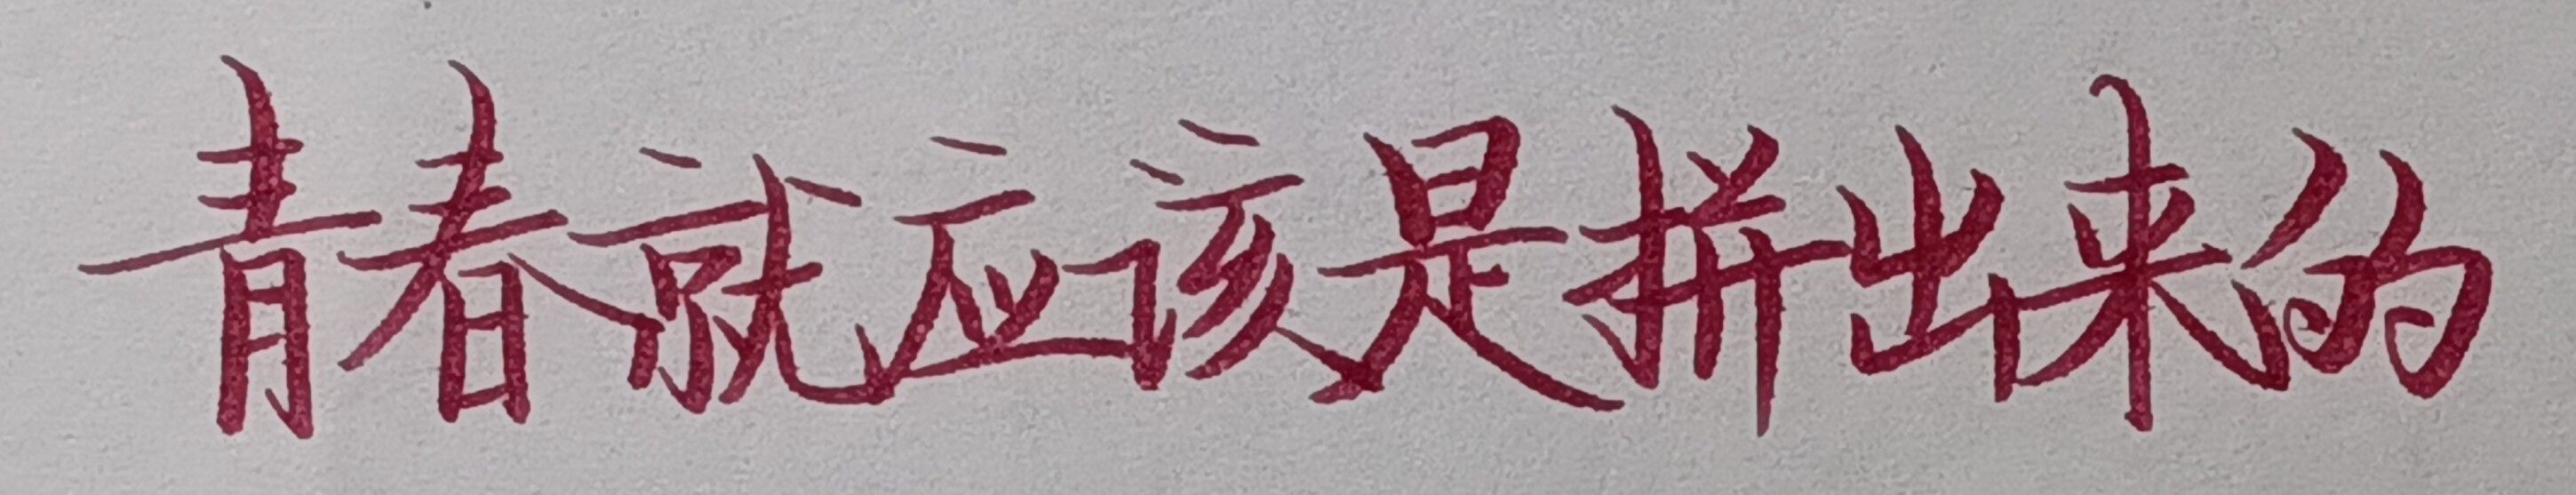 青春就应该是拼出来的